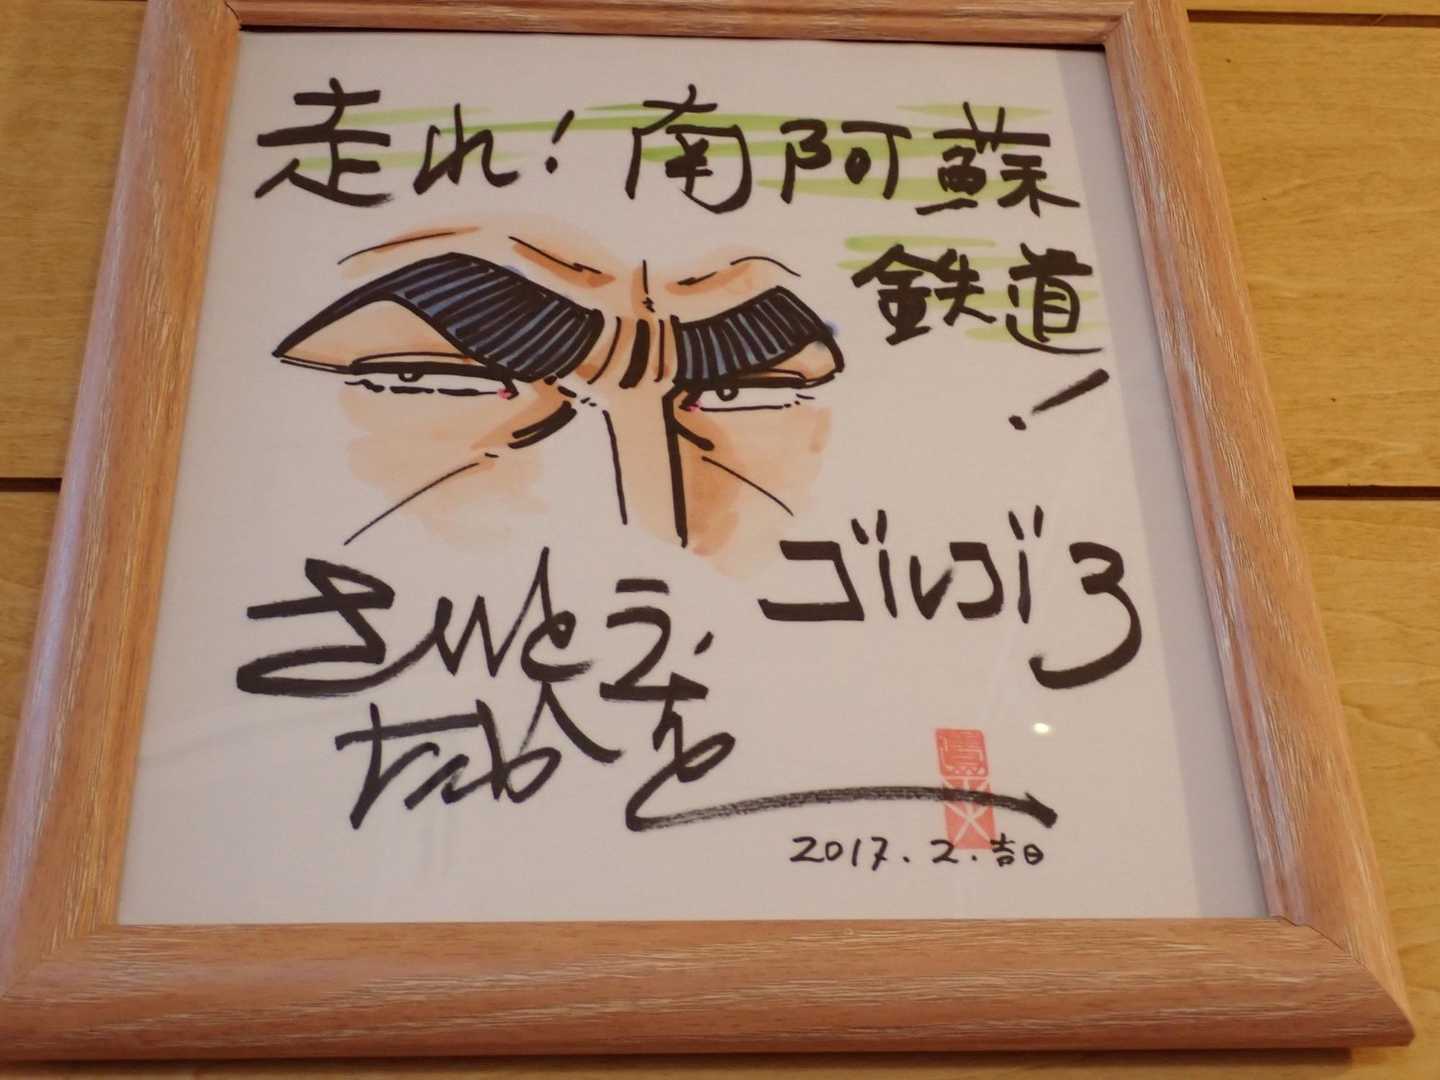 走れ！南阿蘇
鉄道！
ゴルゴ13
さいとう・
たかを
2017.2.吉日